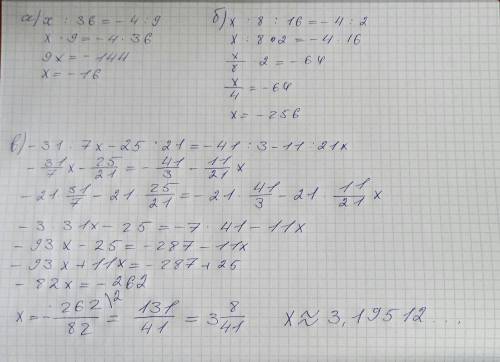 а) x : 36 = -4 : 9
x · 9 = -4 · 36
9x = -144
x = -16
б) x : 8 : 16 = -4 : 2
x : 8 · 2 = -4 · 16
x/8 · 2 = -64
x/4 = -64
x = -256
в) -31 : 7x - 25 : 21 = -41 : 3 - 11 : 21x
- 31/7 x - 25/21 = - 41/3 - 11/21 x
- 21 · 31/7 - 21 · 25/21 = - 21 · 41/3 - 21 · 11/21 x
- 3 · 31x - 25 = -7 · 41 - 11x
- 93x - 25 = -287 - 11x
- 93x + 11x = -287 + 25
- 82x = -262
x = - 262\2/82 = 131/41 = 3 8/41 x ≈ 3,19512...